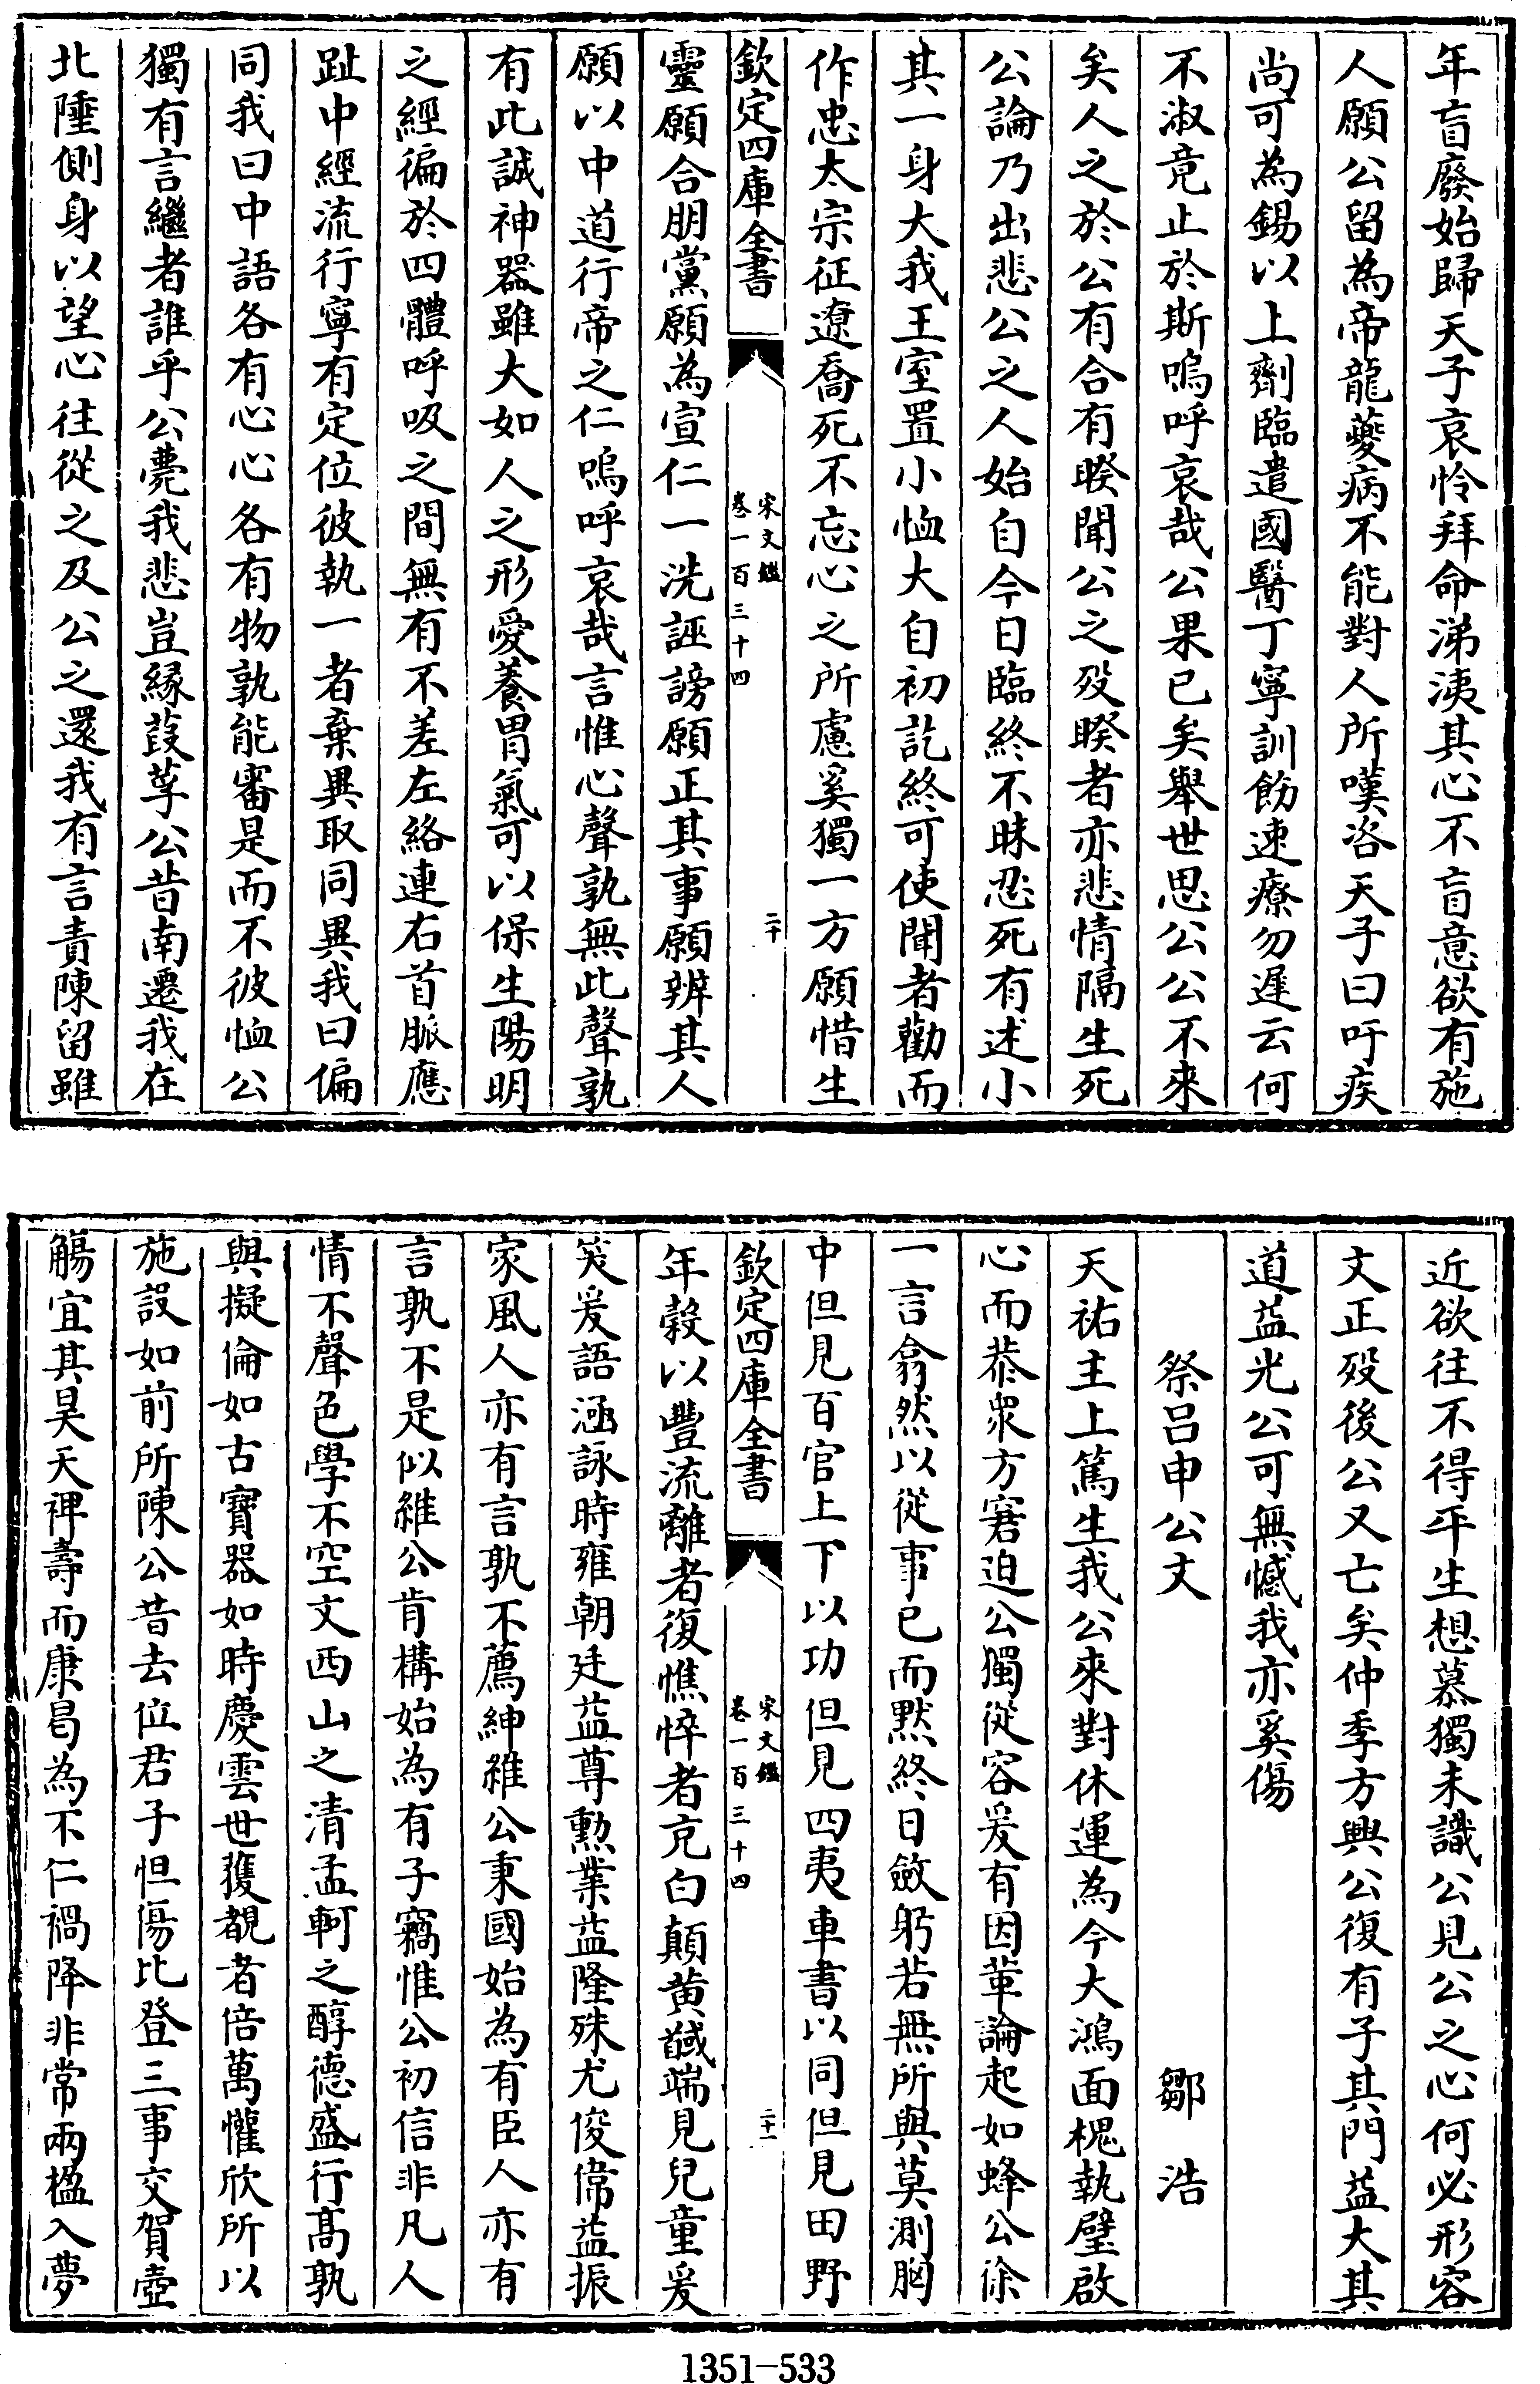 年盲廢始歸天子哀怜拜命涕洟其心不盲意欲有施
人願公留為帝龍夔病不能對人所嘆咨天子曰吁疾
尚可為錫以上劑臨遣國醫丁寧訓飭速療勿遲云何
不淑竟止於斯嗚呼哀哉公果已矣舉世思公公不來
矣人之於公有合有睽聞公之歿睽者亦悲情隔生死
公論乃出悲公之人始自今日臨終不昧忍死有述小
其一身大我王室置小恤大自初訖終可使聞者勸而
作忠太宗征遼喬死不忘心之所慮奚獨一方願惜生
欽定四庫全書
宋文鑑
卷一百三十四
二十
靈願合朋黨願為宣仁一洗誣謗願正其事願辨其人
願以中道行帝之仁嗚呼哀哉言惟心聲孰無此聲孰
有此誠神器雖大如人之形愛養胃氣可以保生陽明
之經徧於四體呼吸之間無有不差左絡連右首脈應
趾中經流行寧有定位彼執一者棄異取同異我曰偏
同我曰中語各有心心各有物孰能審是而不彼恤公
獨有言繼者誰乎公薨我悲豈緣葭莩公昔南遷我在
北陲側身以望心往從之及公之還我有言責陳留雖
近欲往不得平生想慕獨未識公見公之心何必形容
文正歿後公又亡矣仲季方興公復有子其門益大其
道益光公可無憾我亦奚傷
祭呂申公文 鄒浩
天祐主上篤生我公來對休運為今大鴻面槐執璧啟
心而恭衆方窘迫公獨從容爰有因革論起如蜂公徐
一言翕然以從事已而默終日斂躬若無所與莫測胸
中但見百官上下以功但見四夷車書以同但見田野
欽定四庫全書
宋文鑑
卷一百三十四
二十一
年穀以豐流離者復憔悴者充白顛黄馘端見兒童爰
笑爰語涵詠時雍朝廷益尊勲業益隆殊尤俊偉益振
家風人亦有言孰不薦紳維公秉國始為有臣人亦有
言孰不是似維公肯構始為有子竊惟公初信非凡人
情不聲色學不空文西山之清孟軻之醇德盛行髙孰
與擬倫如古寶器如時慶雲世獲覩者倍萬懽欣所以
施設如前所陳公昔去位君子怛傷比登三事交賀壺
觴宜其昊天禆壽而康曷為不仁禍降非常兩楹入夢
1351-533